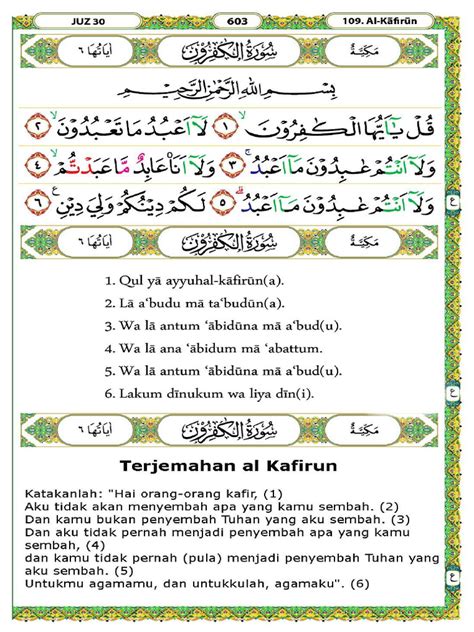 JUZ 30 603 109. Al-Kāfirūn
مَكِيَّةٌ سُوْرَةُ الْكٰفِرُوْنَ اٰيَاتُهَا ٦
بِسْمِ اللّٰهِ الرَّحْمٰنِ الرَّحِيْمِ
قُلْ يٰٓاَيُّهَا الْكٰفِرُوْنَۙ ١ لَآ اَعْبُدُ مَا تَعْبُدُوْنَۙ ٢
وَلَآ اَنْتُمْ عٰبِدُوْنَ مَآ اَعْبُدُۚ ٣ وَلَآ اَنَا۠ عَابِدٌ مَّا عَبَدْتُّمْۙ ٤
وَلَآ اَنْتُمْ عٰبِدُوْنَ مَآ اَعْبُدُۗ ٥ لَكُمْ دِيْنُكُمْ وَلِيَ دِيْنِ ٦ ع
مَكِيَّةٌ سُوْرَةُ الْكٰفِرُوْنَ اٰيَاتُهَا ٦
1. Qul yā ayyuhal-kāfirūn(a).
2. Lā a‘budu mā ta‘budūn(a).
3. Wa lā antum ‘ābidūna mā a‘bud(u).
4. Wa lā ana ‘ābidum mā ‘abattum.
5. Wa lā antum ‘ābidūna mā a‘bud(u).
6. Lakum dīnukum wa liya dīn(i).
ع
مَكِيَّةٌ سُوْرَةُ الْكٰفِرُوْنَ اٰيَاتُهَا ٦
Terjemahan al Kafirun
Katakanlah: "Hai orang-orang kafir, (1)
Aku tidak akan menyembah apa yang kamu sembah. (2)
Dan kamu bukan penyembah Tuhan yang aku sembah. (3)
Dan aku tidak pernah menjadi penyembah apa yang kamu
sembah, (4)
dan kamu tidak pernah (pula) menjadi penyembah Tuhan yang
aku sembah. (5)
ع
Untukmu agamamu, dan untukkulah, agamaku". (6)